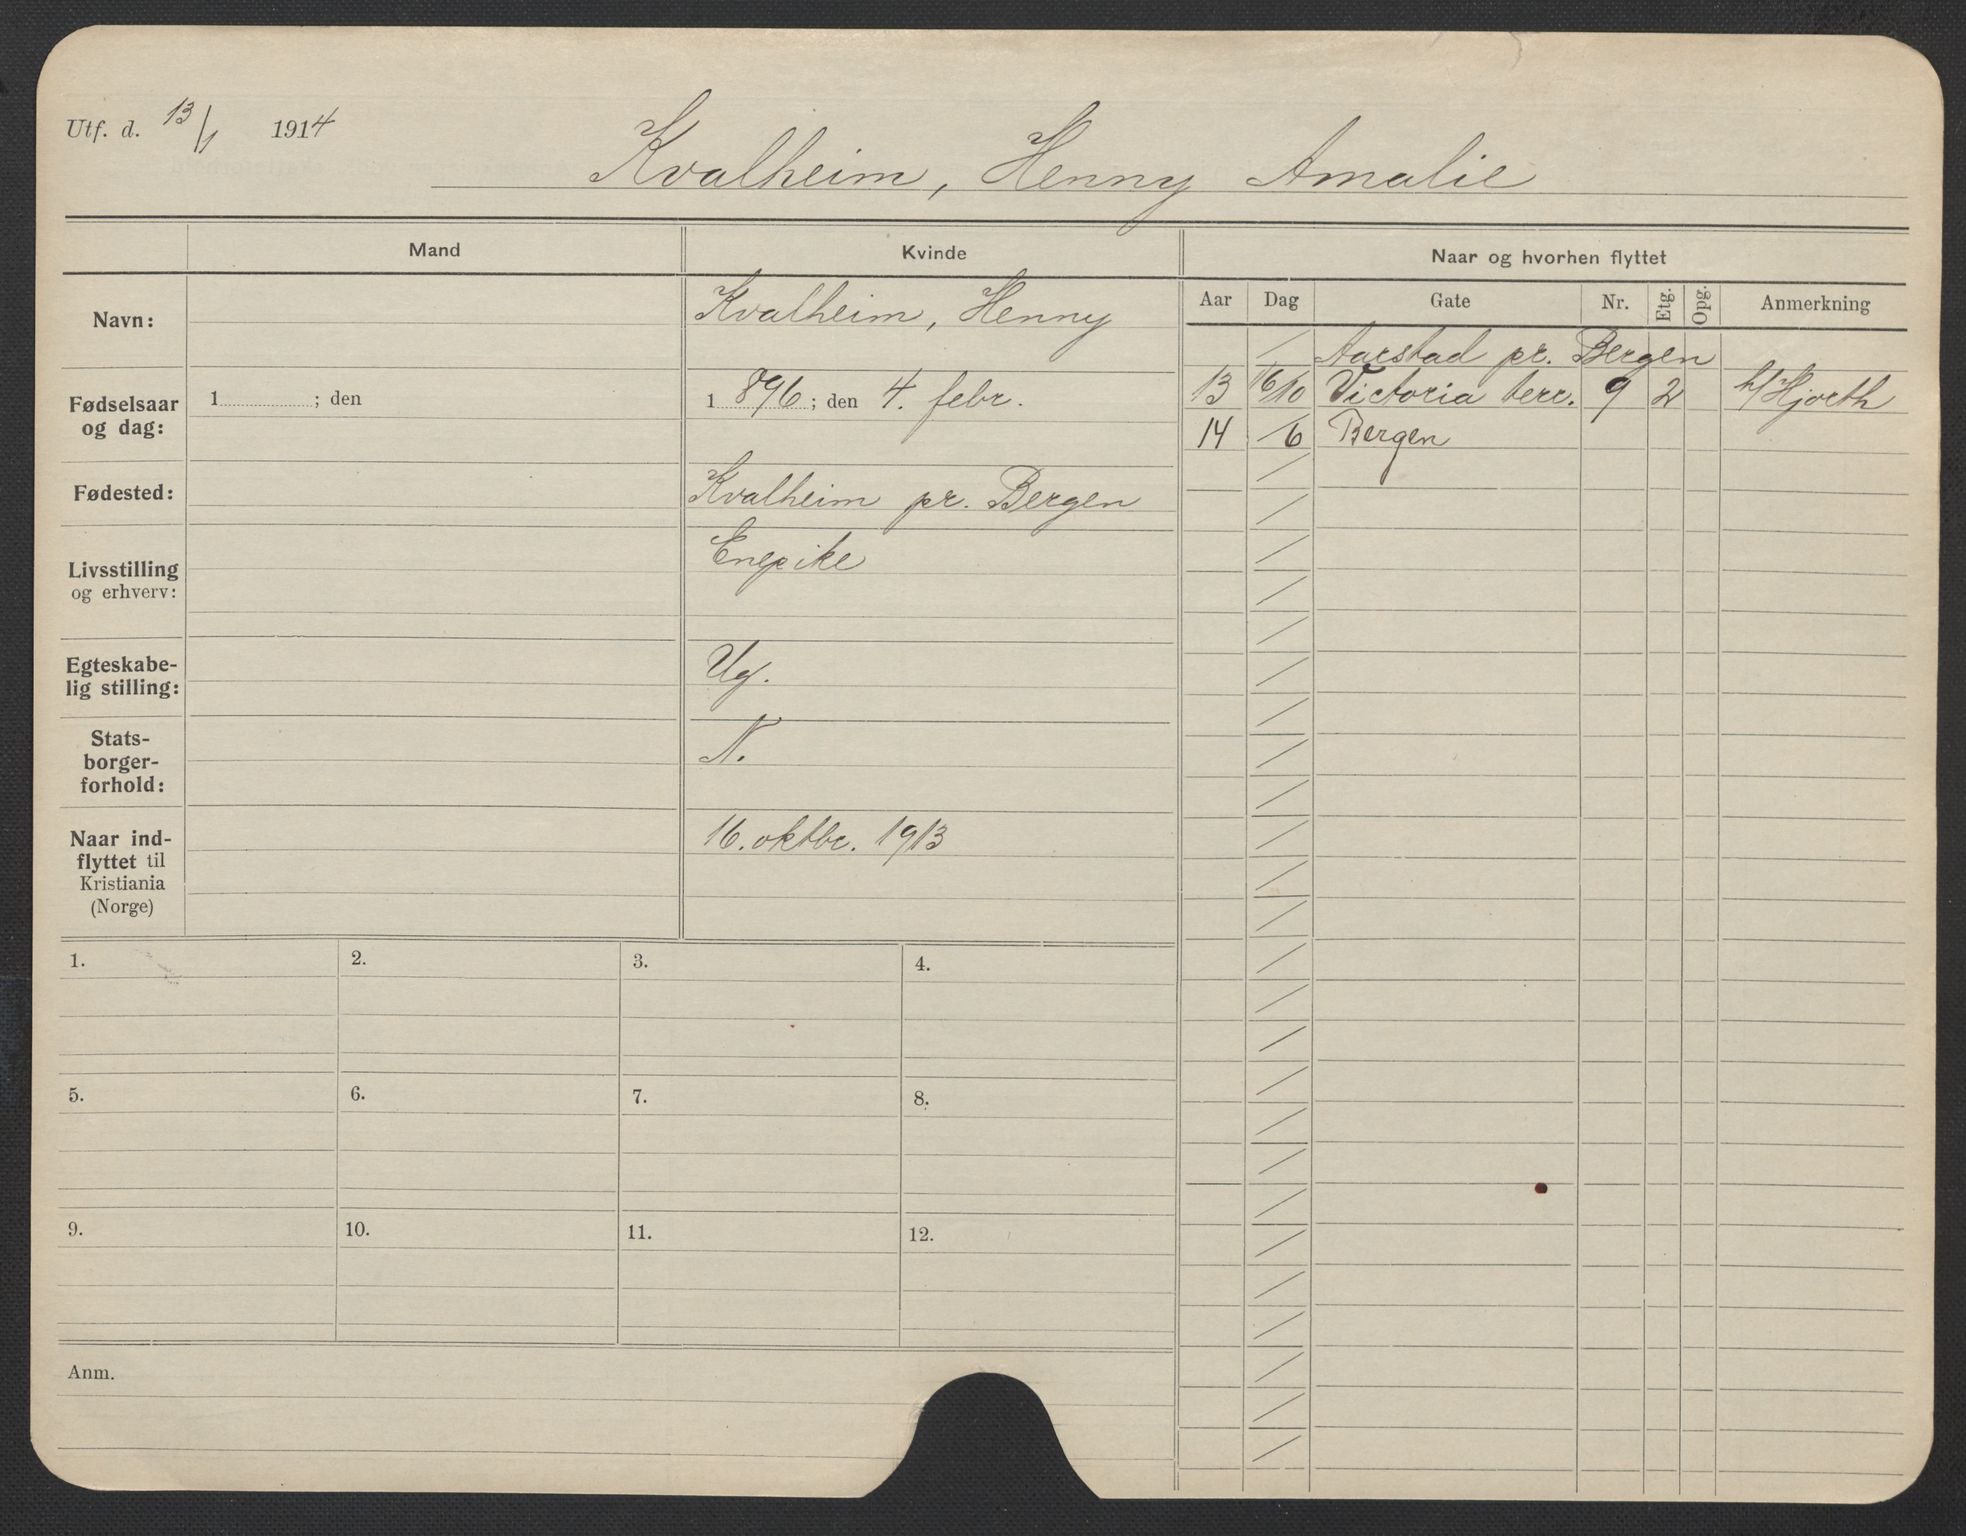 Utf. d. 13/1 1914
Kvalheim, Henny Amalie
Mand
Kvinde
Naar og hvorhen flyttet
Aar Dag Gate Nr. Etg. Opg. Anmerkning
Navn:
Kvalheim, Henny
Fødselsaar og dag:
1 ; den
1896; den 4. febr.
Fødested:
Kvalheim pr. Bergen
Livsstilling
og erhverv:
Enepike
Egteskabe-
lig stilling:
Ug.
Stats-
borger-
forhold:
N.
Naar ind-
flyttet til
Kristiania
(Norge)
16. oktbr. 1913
/ Aarstad pr. Bergen
13 16/10 Victoria terr. 9 2 h/Hjorth
14 /6 Bergen
1. 2. 3. 4.
5. 6. 7. 8.
9. 10. 11. 12.
Anm.